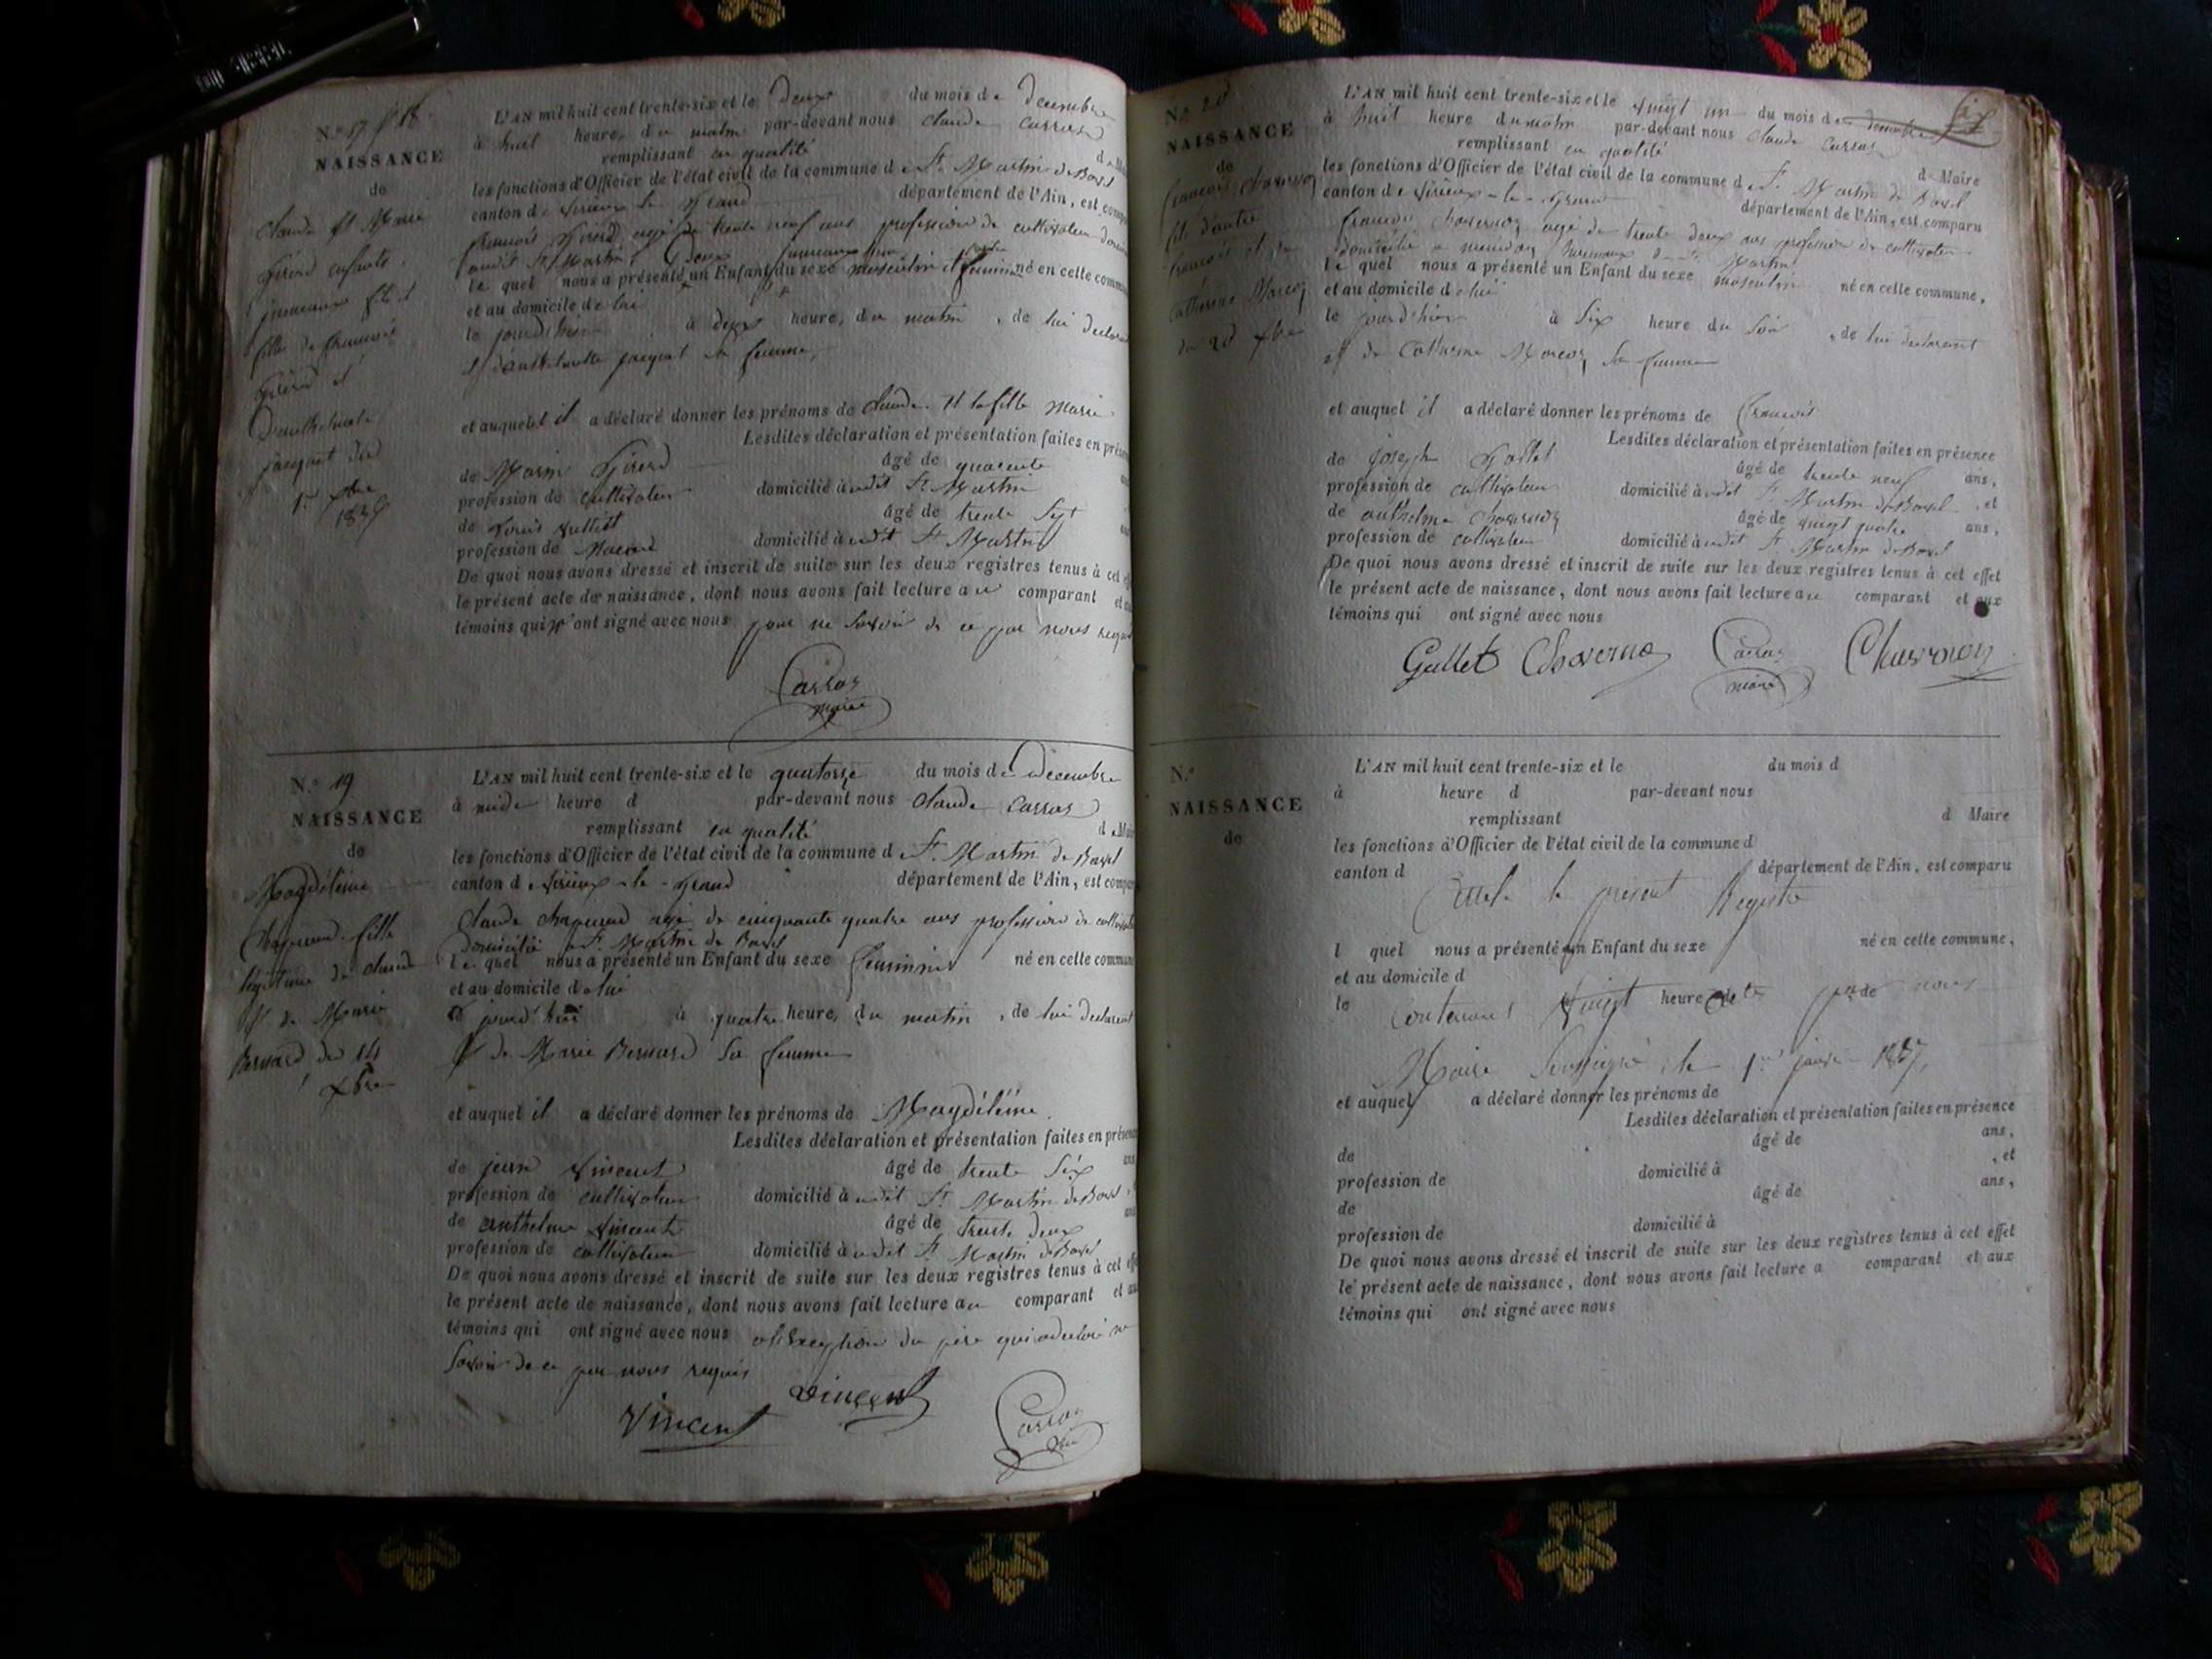 N.º 17 & 18
NAISSANCE
de
Claude et Marie
Girerd enfants
jumeaux fils et
fille de francois
Girerd et
D'anthelmette
jacquet du
1.er Xbre
L'AN mil huit cent trente-six et le deux du mois de Decembre
à huit heure, du matin par-devant nous Claude Carros
remplissant en qualité d e Maire
les fonctions d'Officier de l'état civil de la commune d e St. Martin de Bavel
canton de Virieux le Grand département de l'Ain, est comparu
francois Girerd agé de trente neuf ans profession de cultivateur
audit St Martin
le quel nous a présenté un Enfant du sexe masculin et feminin né en celle commune
et au domicile de lui
le jourd'hier à deux heure, du matin, de lui declarant
et d'anthelmette jacquet sa femme,
et auquel il a déclaré donner les prénoms de Claude. et la fille Marie
Lesdites déclaration et présentation faites en présence
de Marin Girerd âgé de quarente
profession de cultivateur domicilié à udit St Martin
de Louis âgé de trente Sept
profession de domicilié à udit St Martin
De quoi nous avons dressé et inscrit de suite sur les deux registres tenus à cet effet
le présent acte de naissance, dont nous avons fait lecture au comparant et aux
témoins qui n'ont signé avec nous pour ne Savoir de ce par nous requis
Carros
maire
N.º 19
NAISSANCE
de
Magdeleine
Chapuand fille
legitime de claude
et de Marie
Bernard du 14
Xbre
L'AN mil huit cent trente-six et le quatorze du mois de Decembre
à midi heure d par-devant nous Claude Carros
remplissant en qualité d e Maire
les fonctions d'Officier de l'état civil de la commune d e St. Martin de Bavel
canton d e Virieux-le-Grand département de l'Ain, est comparu
Claude agé de cinquante quatre ans profession de cultivateur
Domicilié a St. Martin de Bavel
le quel nous a présenté un Enfant du sexe feminin né en celle commune
et au domicile de lui
le jourd'hui à quatre heure, du matin, de lui declarant
et de Marie Bernard sa femme
et auquel il a déclaré donner les prénoms de Magdeleine.
Lesdites déclaration et présentation faites en présence
de jean Vincent âgé de trente Six ans
profession de cultivateur domicilié à udit St. Martin de Bavel
de anthelme Vincent âgé de trente deux
profession de cultivateur domicilié à udit St Martin de Bavel
De quoi nous avons dressé et inscrit de suite sur les deux registres tenus à cet effet
le présent acte de naissance, dont nous avons fait lecture au comparant et aux
témoins qui ont signé avec nous a l'exception du père qui a declaré ne
Savoir de ce par nous requis
Vincent Vincent Carros
N.º 20
NAISSANCE
de
francois
fils d'autre
francois et de
Catherine
du 20 Xbre
L'AN mil huit cent trente-six et le vingt un du mois de decembre
à huit heure du matin par-devant nous Claude Carros
remplissant en qualité d e Maire
les fonctions d'Officier de l'état civil de la commune d e St. Martin de Bavel
canton de Virieux-le-Grand département de l'Ain, est comparu
francois agé de trente deux ans profession de cultivateur
domicilié a hameaux de St Martin
le quel nous a présenté un Enfant du sexe masculin né en celle commune,
et au domicile de lui
le jourd'hier à Six heure du Soir, de lui declarant
et de Catherine sa femme
et auquel il a déclaré donner les prénoms de francois
Lesdites déclaration et présentation faites en présence
de joseph Gallet âgé de trente neuf ans,
profession de cultivateur domicilié à udit St Martin de Bavel, et
de anthelme âgé de vingt quatre ans,
profession de cultivateur domicilié à udit St Martin de Bavel
De quoi nous avons dressé et inscrit de suite sur les deux registres tenus à cet effet
le présent acte de naissance, dont nous avons fait lecture au comparant et aux
témoins qui ont signé avec nous
Gallet Carros
maire
N.º
NAISSANCE
de
L'AN mil huit cent trente-six et le du mois d
à heure d par-devant nous
remplissant d Maire
les fonctions d'Officier de l'état civil de la commune d
canton d département de l'Ain, est comparu
le présent Registre
l quel nous a présenté un Enfant du sexe né en celle commune,
et au domicile d
le heure d de
Contenant Vingt acte par nous
Maire Soussigné le 1.er janvier 1837,
et auquel a déclaré donner les prénoms de
Lesdites déclaration et présentation faites en présence
de âgé de ans,
profession de domicilié à , et
de âgé de ans,
profession de domicilié à
De quoi nous avons dressé et inscrit de suite sur les deux registres tenus à cet effet
le présent acte de naissance, dont nous avons fait lecture a comparant et aux
témoins qui ont signé avec nous